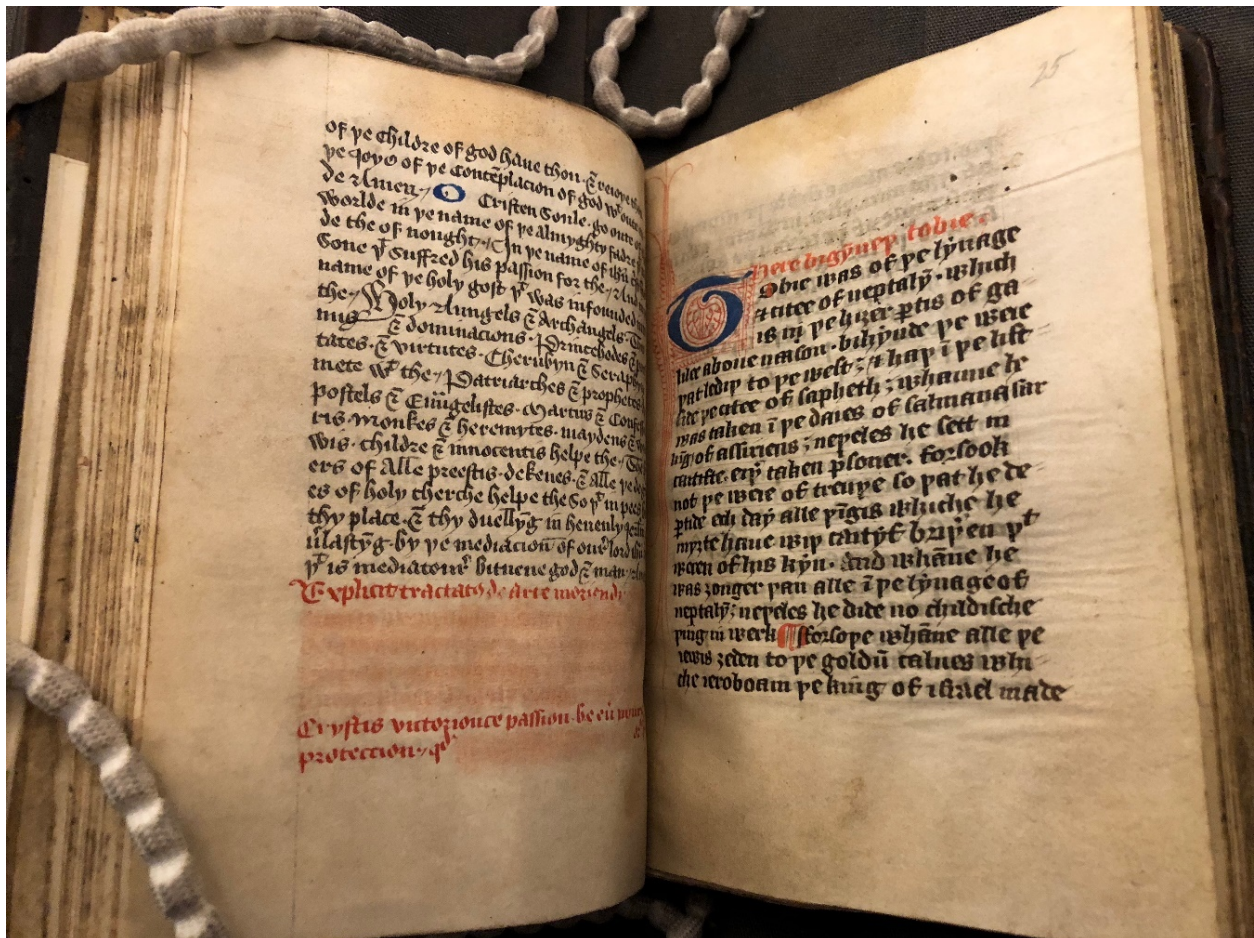 of þe childre of god haue thou · & reioyse
þe Joye of þe contēplacion of god wᵗ oute
de Amen · O Cristen Soule · go oute of
worlde in þe name of þe Almyghty fadre
de the of nought · In þe name of ihū
Sone þᵗ Suffred his passion for the · And
name of þe holy gost þᵗ was infounded
the · Holy Aungels & Archangels ·
& dominacions · Princehodes &
tates · & virtutes · Cherubyn & Seraphyn
mete wᵗ the · Patriarches & prophetes
postels & Euūgelistes · Martirs & Confess
ris · Monkes & heremytes · maydens &
wis · childre & innocentis helpe the ·
ers of Alle preestis · dekenes · & alle þe
es of holy cherche helpe the So þᵗ in pees
thy place · & thy duellȳg in heuenly
ulastȳg · by þe mediacioū of ourͬ lord ihū
þᵗ is mediatourͬ bituene god & man
Explicit tractatꝰ de arte moriendi
Crystis victoriouce passion · be eū
proteccion · qᵈ
25
Here bigȳneþ tobie
Tobie was of þe lȳnage
& citee of neptalȳ · which
is in þe hiȝer ꝑtis of ga
lilee aboue nason · bihȳnde þe weie
þat lediþ to þe west ; & haþ ī þe lift
side þe citee of sapheth ; whanne he
was taken ī þe daies of salmanasar
kīg of assiriens ; neþeles he sett in
caitifte · eiþ taken p̄soner · forsook
not þe weie of treuþe so þat he de
ꝑtide ech daȳ alle þīgis whiche he
myȝte haue wiþ caitȳf briþeren þᵗ
weren of his kȳn · And whāne he
was ȝonger þan alle ī þe lȳnage of
neptalȳ ; neþeles he dide no childische
þing in werk ¶ fforsoþe whāne alle þe
iewis ȝeden to þe goldū calues whi
che ieroboam þe king of israel made